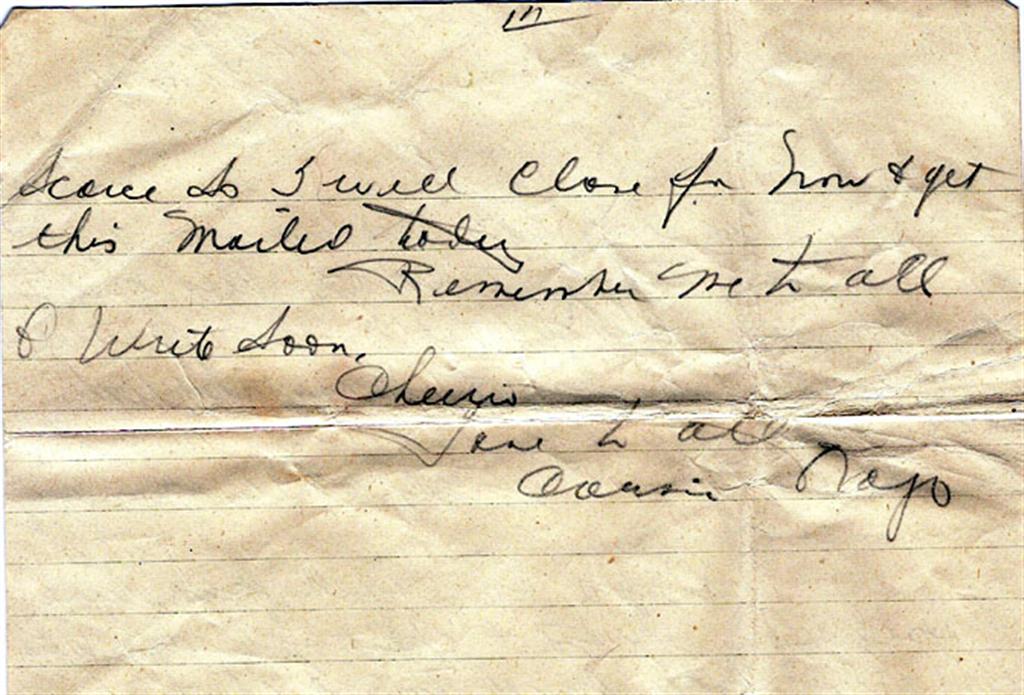 scarce so I will Close for Now & get
this Mailed today
Remember Me to all
& Write Soon.
Cheerio
Love to all
Cousin